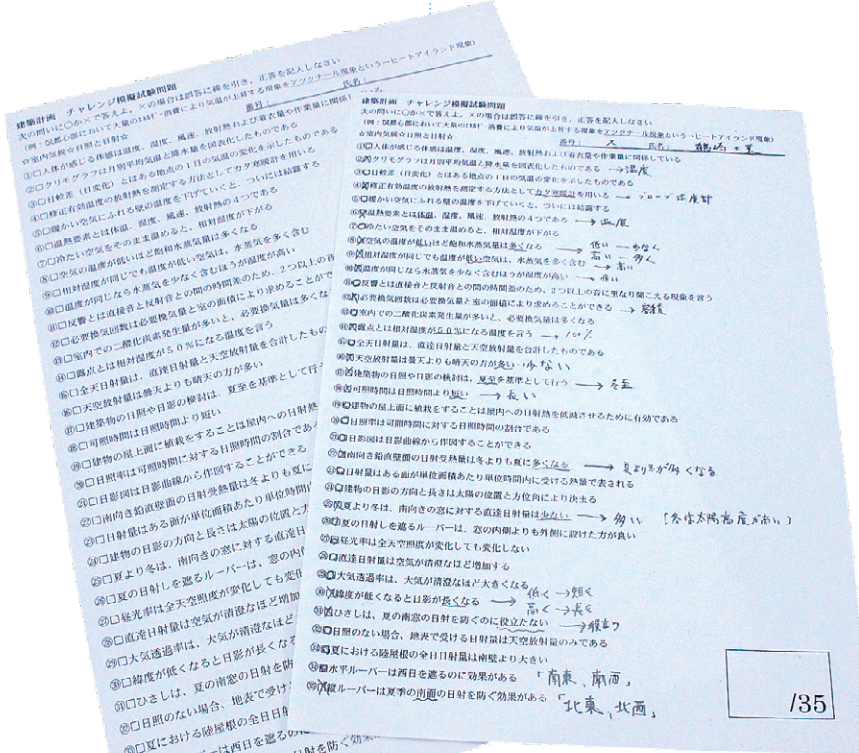 建築計画 チャレンジ模擬試験問題
次の問いに○か×で答えよ。×の場合は誤答に線を引き、正答を記入しなさい
番号： 氏名：
☆室内気候☆日照と日射☆
①□人体が感じる体感は温度、湿度、風速、放射熱および着衣量や作業量に関係し
②□クリモグラフは月別平均気温と降水量を図表化したものである
③□日較差（日変化）とはある地点の１日の気温の変化を示したものである
④□修正有効温度の放射熱を測定する方法としてカタ寒暖計を用いる
⑤□暖かい空気にふれる壁の温度を下げていくと、ついには結露する
⑥□温熱要素とは体温、湿度、風速、放射熱の４つである
⑦□冷たい空気をそのまま温めると、相対湿度が下がる
⑧□空気の温度が低いほど飽和水蒸気量は多くなる
⑨□相対湿度が同じでも温度が低い空気は、水蒸気を多く含む
⑩□温度が同じなら水蒸気を少なく含むほうが湿度が高い
⑪□反響とは直接音と反射音との間の時間差のため、２つ以上の
⑫□必要換気回数は必要換気量と室の面積により求めることがで
⑬□室内での二酸化炭素発生量が多いと、必要換気量は多くな
⑭□露点とは相対湿度が５０％になる温度を言う
⑮□全天日射量は、直達日射量と天空放射量を合計したもの
⑯□天空放射量は曇天よりも晴天の方が多い
⑰□建築物の日照や日影の検討は、夏至を基準として行
⑱□可照時間は日照時間より短い
⑲□建物の屋上面に植栽をすることは屋内への日射熱
⑳□日照率は可照時間に対する日照時間の割合であ
㉑□日影図は日影曲線から作図することができる
㉒□南向き鉛直壁面の日射受熱量は冬よりも夏に
㉓□日射量はある面が単位面積あたり単位時間
㉔□建物の日影の方向と長さは太陽の位置と方
㉕□夏より冬は、南向きの窓に対する直達日
㉖□夏の日射しを遮るルーバーは、窓の内
㉗□昼光率は全天照度が変化しても変化
㉘□直達日射量は空気が清澄なほど増加
㉙□大気透過率は、大気が清澄なほど
㉚□緯度が低くなると日影が長くなる
㉛□ひさしは、夏の南窓の日射を防
㉜□日照のない場合、地表で受け
㉝□夏における陸屋根の全日日射
は西日を遮るの
建築計画 チャレンジ模擬試験問題
次の問いに○か×で答えよ。×の場合は誤答に線を引き、正答を記入しなさい
番号： 氏名：
☆室内気候☆日照と日射☆
①□人体が感じる体感は温度、湿度、風速、放射熱および着衣量や作業量に関係している
②クリモグラフは月別平均気温と降水量を図表化したものである → 湿度
③□日較差（日変化）とはある地点の１日の気温の変化を示したものである
④修正有効温度の放射熱を測定する方法としてカタ寒暖計を用いる → グローブ温度計
⑤□暖かい空気にふれる壁の温度を下げていくと、ついには結露する
⑥温熱要素とは体温、湿度、風速、放射熱の４つである → 温度
⑦□冷たい空気をそのまま温めると、相対湿度が下がる
⑧空気の温度が低いほど飽和水蒸気量は多くなる → 低い ― 少なく 高い ― 多く
⑨相対湿度が同じでも温度が低い空気は、水蒸気を多く含む → 高い
⑩温度が同じなら水蒸気を少なく含むほうが湿度が高い → 低い
⑪□反響とは直接音と反射音との間の時間差のため、２つ以上の音に重なり聞こえる現象を言う
⑫必要換気回数は必要換気量と室の面積により求めることができる → 容積
⑬□室内での二酸化炭素発生量が多いと、必要換気量は多くなる
⑭露点とは相対湿度が５０％になる温度を言う → 100%
⑮□全天日射量は、直達日射量と天空放射量を合計したものである
⑯天空放射量は曇天よりも晴天の方が多い 少ない
⑰建築物の日照や日影の検討は、夏至を基準として行う → 冬至
⑱可照時間は日照時間より短い → 長い
⑲□建物の屋上面に植栽をすることは屋内への日射熱を低減させるために有効である
⑳□日照率は可照時間に対する日照時間の割合である
㉑□日影図は日影曲線から作図することができる
㉒南向き鉛直壁面の日射受熱量は冬よりも夏に多くなる → 夏より冬が多くなる
㉓□日射量はある面が単位面積あたり単位時間内に受ける熱量で表される
㉔□建物の日影の方向と長さは太陽の位置と方位角により決まる
㉕夏より冬は、南向きの窓に対する直達日射量は少ない → 多い
㉖□夏の日射しを遮るルーバーは、窓の内側よりも外側に設けた方が良い
㉗□昼光率は全天照度が変化しても変化しない
㉘□直達日射量は空気が清澄なほど増加する
㉙□大気透過率は、大気が清澄なほど大きくなる
㉚緯度が低くなると日影が長くなる → 低く → 短く 高く → 長く
㉛ひさしは、夏の南窓の日射を防ぐのに役立たない → 役立つ
㉜□日照のない場合、地表で受ける日射量は天空放射量のみである
㉝□夏における陸屋根の全日日射量は南壁より大きい
㉞□水平ルーバーは西日を遮るのに効果がある 「南東、南西」
㉟縦ルーバーは夏季の南面の日射を防ぐ効果がある 「北東、北西」
/35